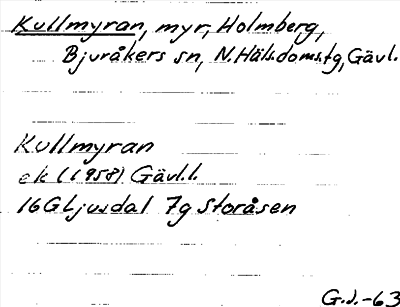 Kullmyran, myr, Holmberg,
Bjuråkers sn, N.Häls.doms.tg, Gävl.
Kullmyran
ek (1958) Gävl.l.
16G Ljusdal 7g Storåsen
G.J.-63